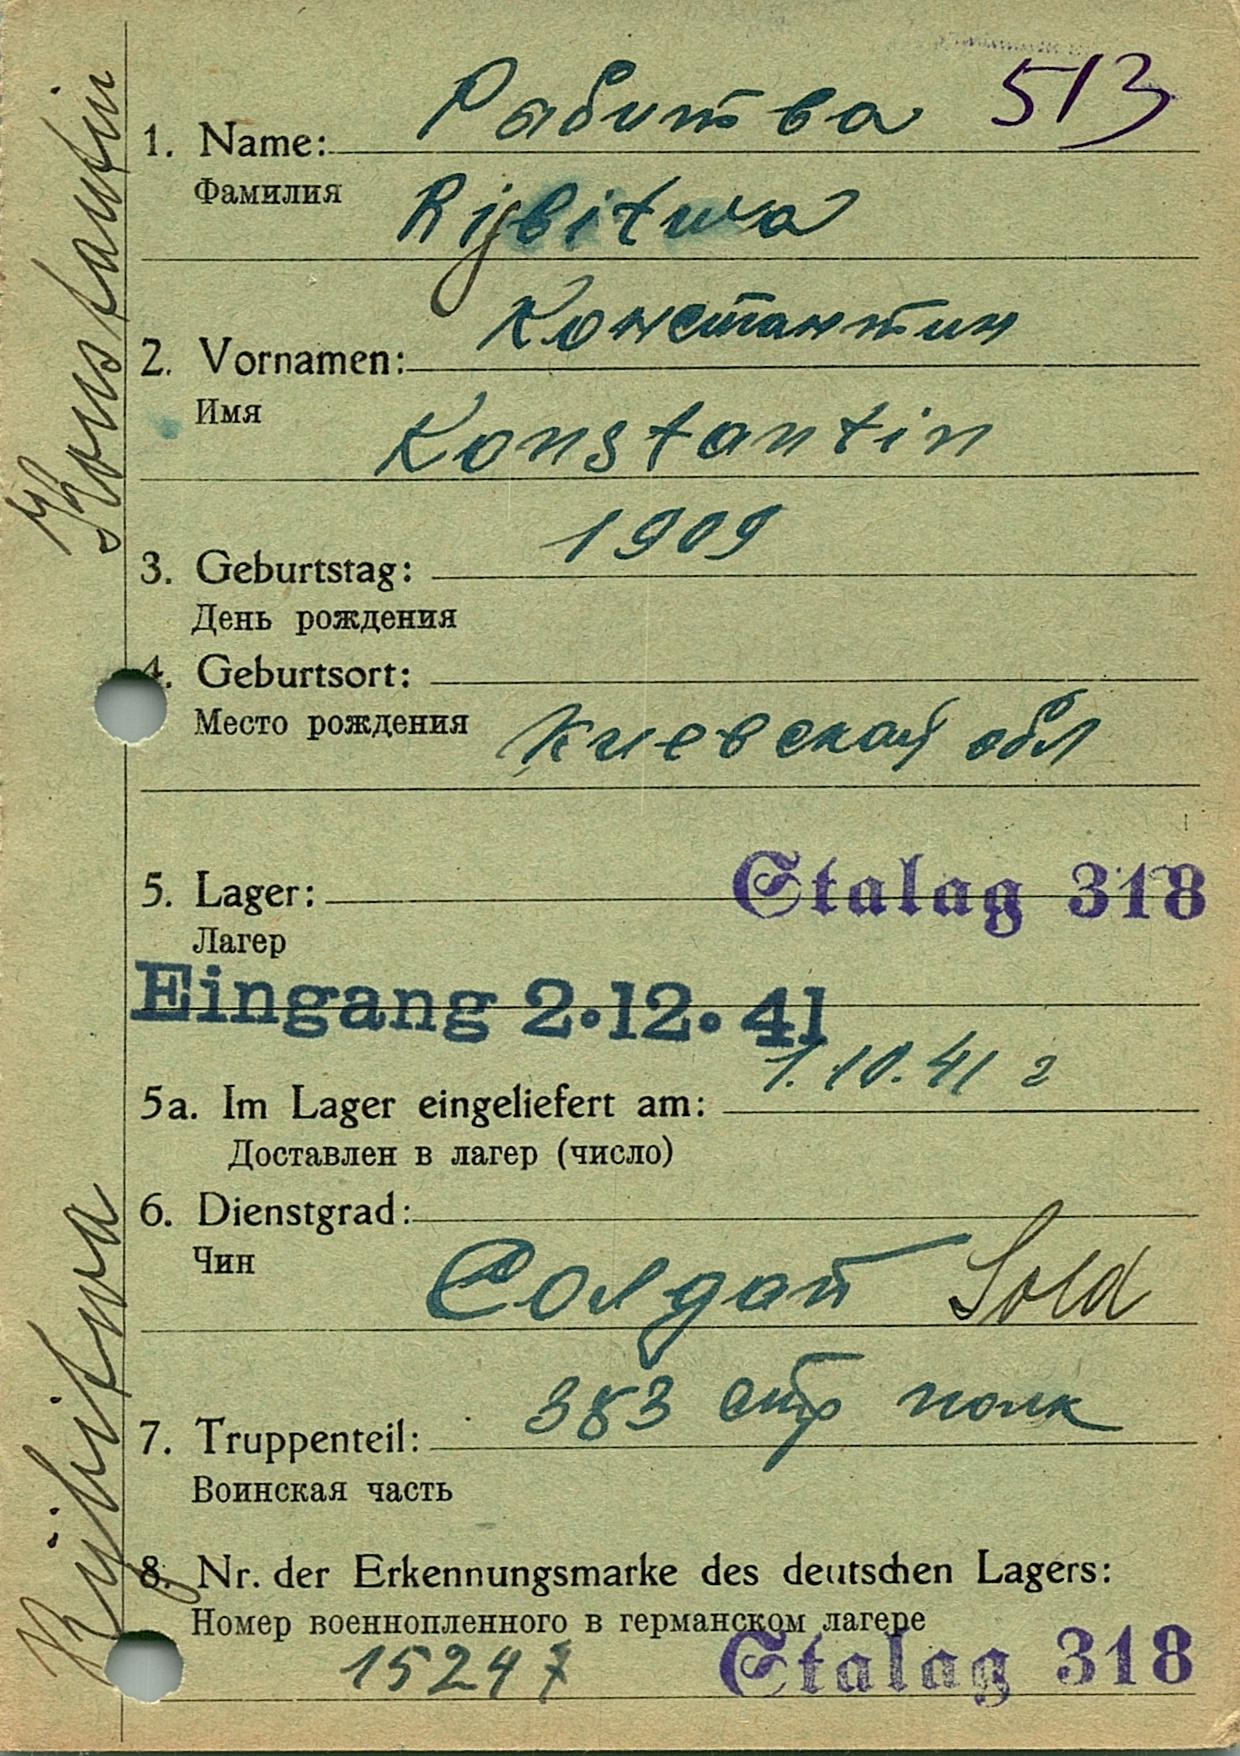 513
Рабитва
1. Name:
Фамилия
Rijbitwa
Константин
2. Vornamen:
Имя
Konstantin
1909
3. Geburtstag:
День рождения
4. Geburtsort:
Место рождения
Киевской обл
5. Lager: Stalag 318
Лагер
Eingang 2.12.41
1.10.41 г
5a. Im Lager eingeliefert am:
Доставлен в лагер (число)
6. Dienstgrad:
Чин
Солдат Sold
383 стр полк
7. Truppenteil:
Воинская часть
8. Nr. der Erkennungsmarke des deutschen Lagers:
Номер военнопленного в германском лагере
15247 Stalag 318
Rijbitwa Konstantin